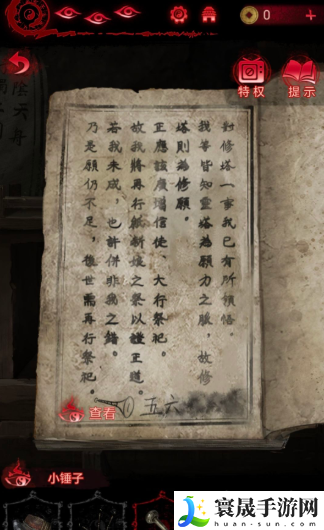 0
特权
提示
對修塔一事我已有所領悟。
我等皆知靈塔為願力之脈,故修
塔則為修願,
正應該廣增信徒、大行祭祀。
故我將再行紙新娘之祭以證王道。
若我未成,也許併非我之錯。
乃是願仍不足,後世需再行祭祀。
五六
查看
小锤子
寰晟手游网
huan-sun.com